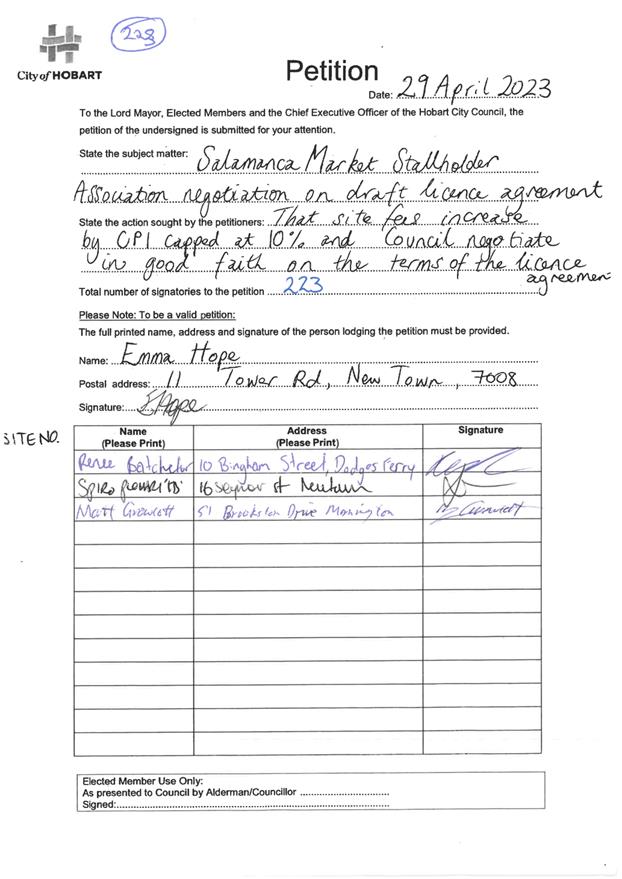 City of HOBART
223
Petition
Date: 29 April 2023
To the Lord Mayor, Elected Members and the Chief Executive Officer of the Hobart City Council, the
petition of the undersigned is submitted for your attention.
State the subject matter: Salamanca Market Stallholder
Association negotiation on draft licence agreement
State the action sought by the petitioners: That site fees increase
by CPI capped at 10% and Council negotiate
in good faith on the terms of the licence
agreemen
Total number of signatories to the petition 223
Please Note: To be a valid petition:
The full printed name, address and signature of the person lodging the petition must be provided.
Name: Emma Hope
Postal address: 11 Tower Rd, New Town, 7008
Signature: EHope
SITE NO.
Name Address Signature
(Please Print) (Please Print)
Renee Batchelor 10 Bingham Street, Dodges Ferry
Spiro 16 st
Matt 51 Drive Mornington
Elected Member Use Only:
As presented to Council by Alderman/Councillor
Signed: